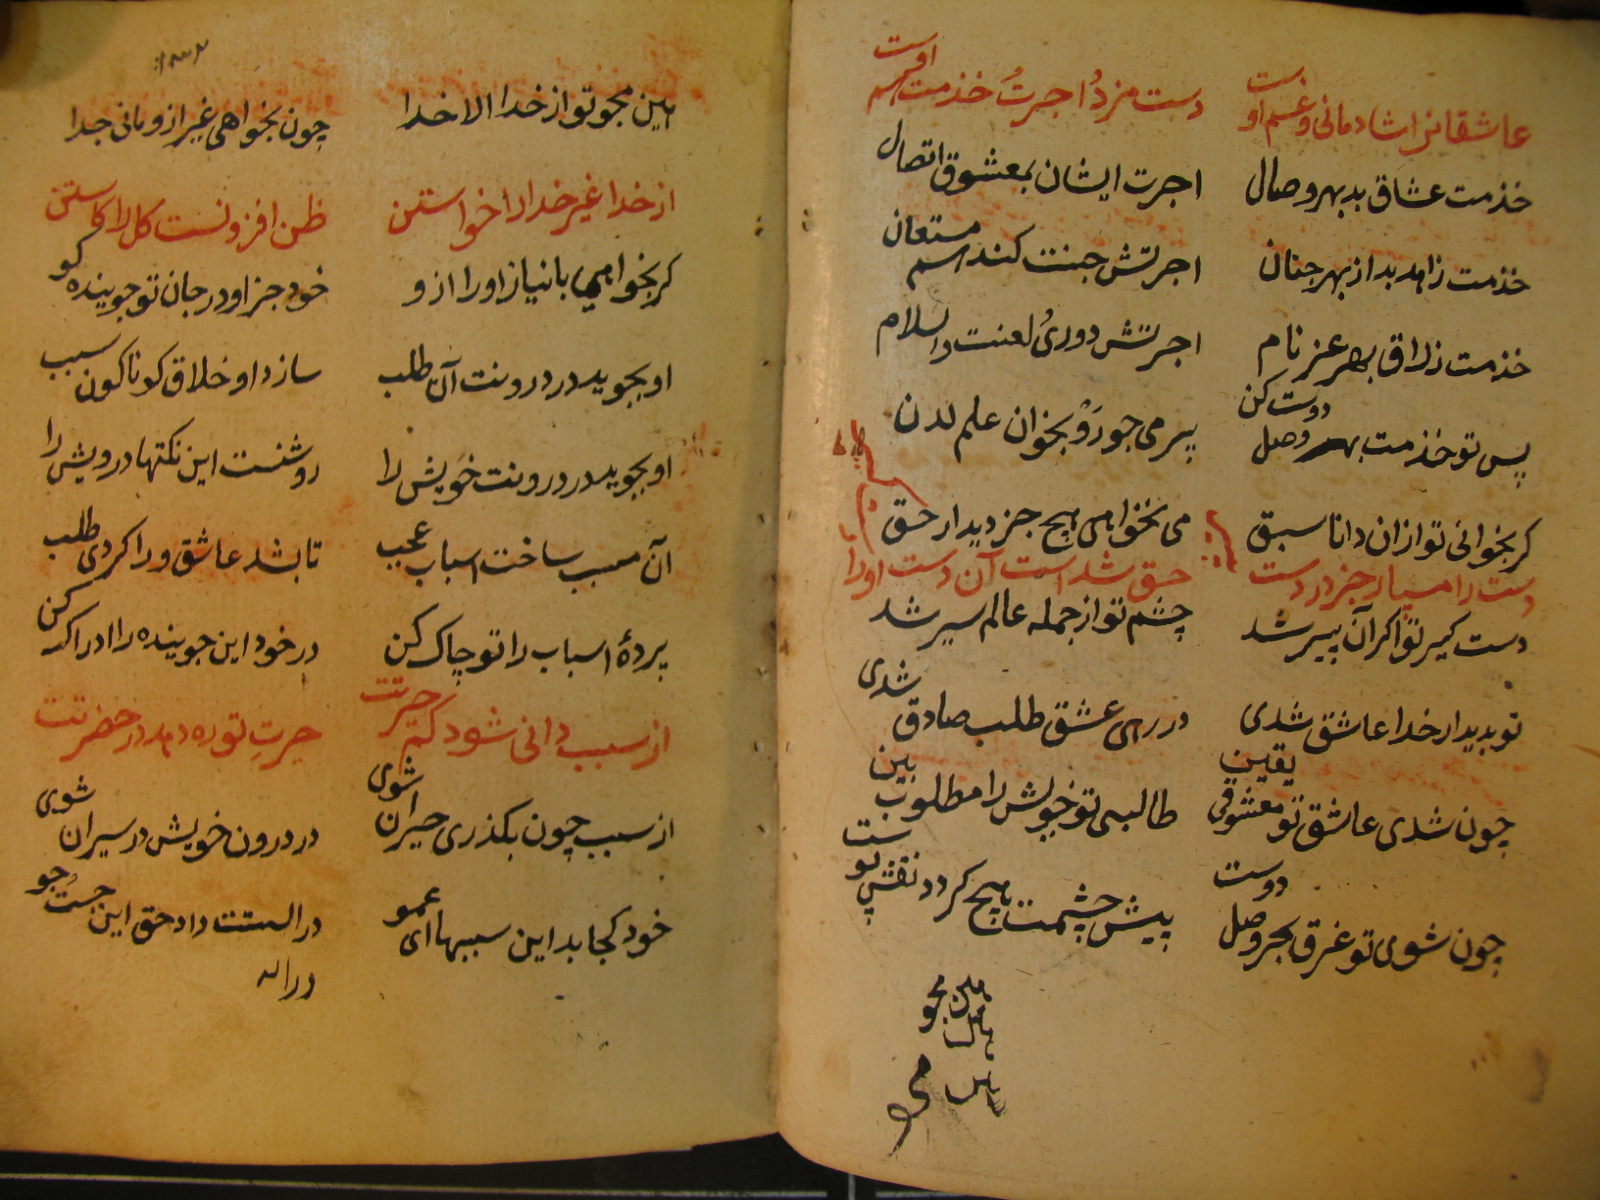 عاشقانرا شادمانی و غم اوست دست مزد اجرت خذمت هم اوست
خذمت عشاق بد بهر وصال اجرت ایشان بمعشوق اتصال
خذمت زاهد بد از بهر جنان اجرتش جنت کند هم مستعان
خذمت زراق بهر عز نام اجرتش دوری لعنت والسلام
پس تو خذمت بهر وصل دوست کن پیر می جو رو بخوان علم لدن
کر بخوانی تو ازان دانا سبق می نخواهی هیچ جز دیدار حق
دست را مسپار جز در دست حق شد است آن دست اورا
دست کیر تو اکر آن پیر شد چشم تو از جمله عالم سیر شد
تو بدیدار خدا عاشق شدی در رهی عشق طلب صادق شدی
چون شدی عاشق تو معشوقی یقین طالبی تو خویش را مطلوب بین
چون شوی تو غرق بحر وصل دوست پیش چشمت هیچ کردد نقش پوست
هین مجو
می
هین مجو تو از خدا الا خدا چون بخواهی غیر ازو مانی جدا
از خدا غیر خدارا خواستن ظن افزونست کل را کاستن
کر بخواهی با نیاز اورا ازو خود جز او در جان تو جوینده کو
او بجوید در درونت آن طلب سازد او خلاق کوناکون سبب
او بجوید در درونت خویش را روشنست این نکتها درویش را
آن مسبب ساخت اسباب عجب تا بشد عاشق ورا کردی طلب
پردهٔ اسباب را تو چاک کن در خود این جوینده را ادراک کن
از سبب دانی شود کم حیرتت حیرت تو ره دهد در حضرتت
از سبب چون بکذری حیران شوی در درون خویش در سیران شوی
خود کجا بد این سببها ای عمو در الستت داد حق این جست جو